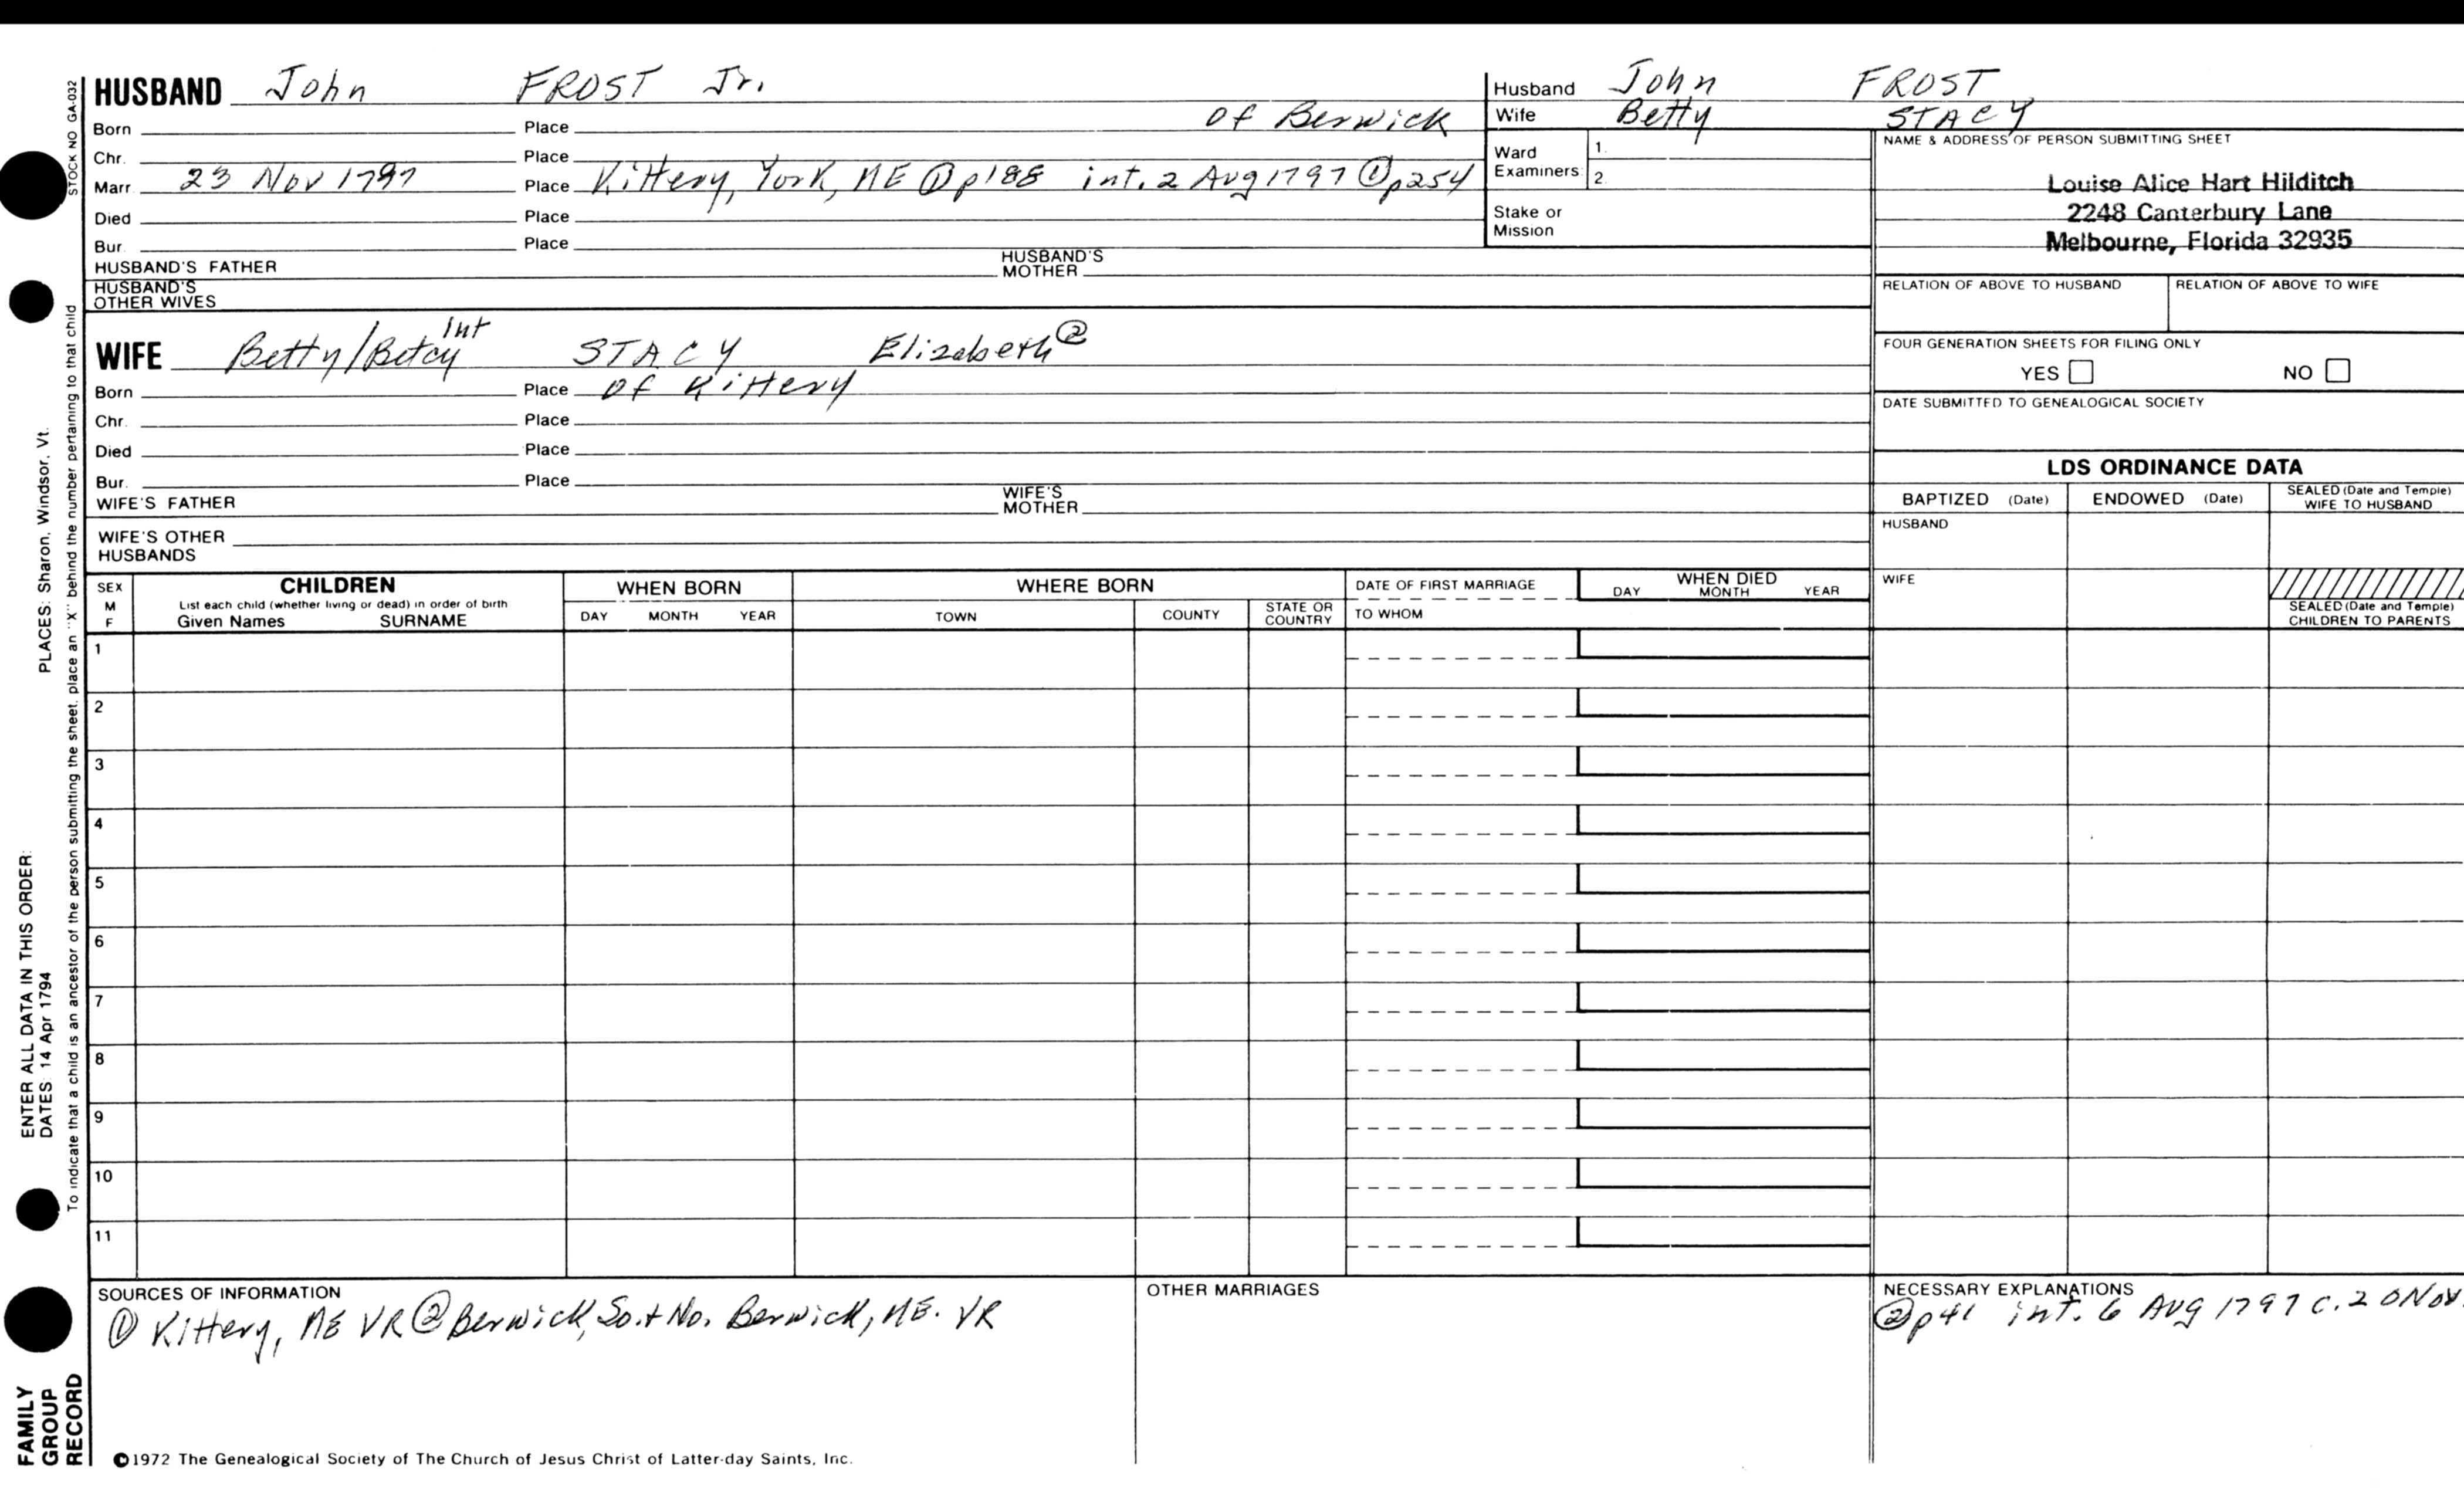 HUSBAND John FROST Jr.
Husband John FROST
Wife Betty STACY
Born Place of Berwick
Chr. Place
Marr 23 Nov 1797 Place Kittery, York, ME ① p188 int. 2 Aug 1797 ① p254
Died Place
Bur. Place
HUSBAND'S FATHER HUSBAND'S MOTHER
HUSBAND'S OTHER WIVES
Ward Examiners 1. 2.
Stake or Mission
NAME & ADDRESS OF PERSON SUBMITTING SHEET
Louise Alice Hart Hilditch
2248 Canterbury Lane
Melbourne, Florida 32935
RELATION OF ABOVE TO HUSBAND RELATION OF ABOVE TO WIFE
WIFE Betty/Betcy Int STACY Elizabeth ②
Born Place of Kittery
Chr. Place
Died Place
Bur. Place
WIFE'S FATHER WIFE'S MOTHER
WIFE'S OTHER HUSBANDS
FOUR GENERATION SHEETS FOR FILING ONLY
YES NO
DATE SUBMITTED TO GENEALOGICAL SOCIETY
LDS ORDINANCE DATA
BAPTIZED (Date) ENDOWED (Date) SEALED (Date and Temple) WIFE TO HUSBAND
HUSBAND
WIFE
SEALED (Date and Temple) CHILDREN TO PARENTS
SEX M F
CHILDREN
List each child (whether living or dead) in order of birth
Given Names SURNAME
WHEN BORN
DAY MONTH YEAR
WHERE BORN
TOWN COUNTY STATE OR COUNTRY
DATE OF FIRST MARRIAGE
TO WHOM
WHEN DIED
DAY MONTH YEAR
1
2
3
4
5
6
7
8
9
10
11
SOURCES OF INFORMATION
① Kittery, ME VR ② Berwick, So. + No. Berwick, ME. VR
OTHER MARRIAGES
NECESSARY EXPLANATIONS
② p41 int. 6 Aug 1797 c. 20 Nov.
©1972 The Genealogical Society of The Church of Jesus Christ of Latter-day Saints, Inc.
STOCK NO GA-032
To indicate that a child is an ancestor of the person submitting the sheet, place an "X" behind the number pertaining to that child
ENTER ALL DATA IN THIS ORDER:
DATES 14 Apr 1794 PLACES: Sharon, Windsor, Vt.
FAMILY
GROUP
RECORD